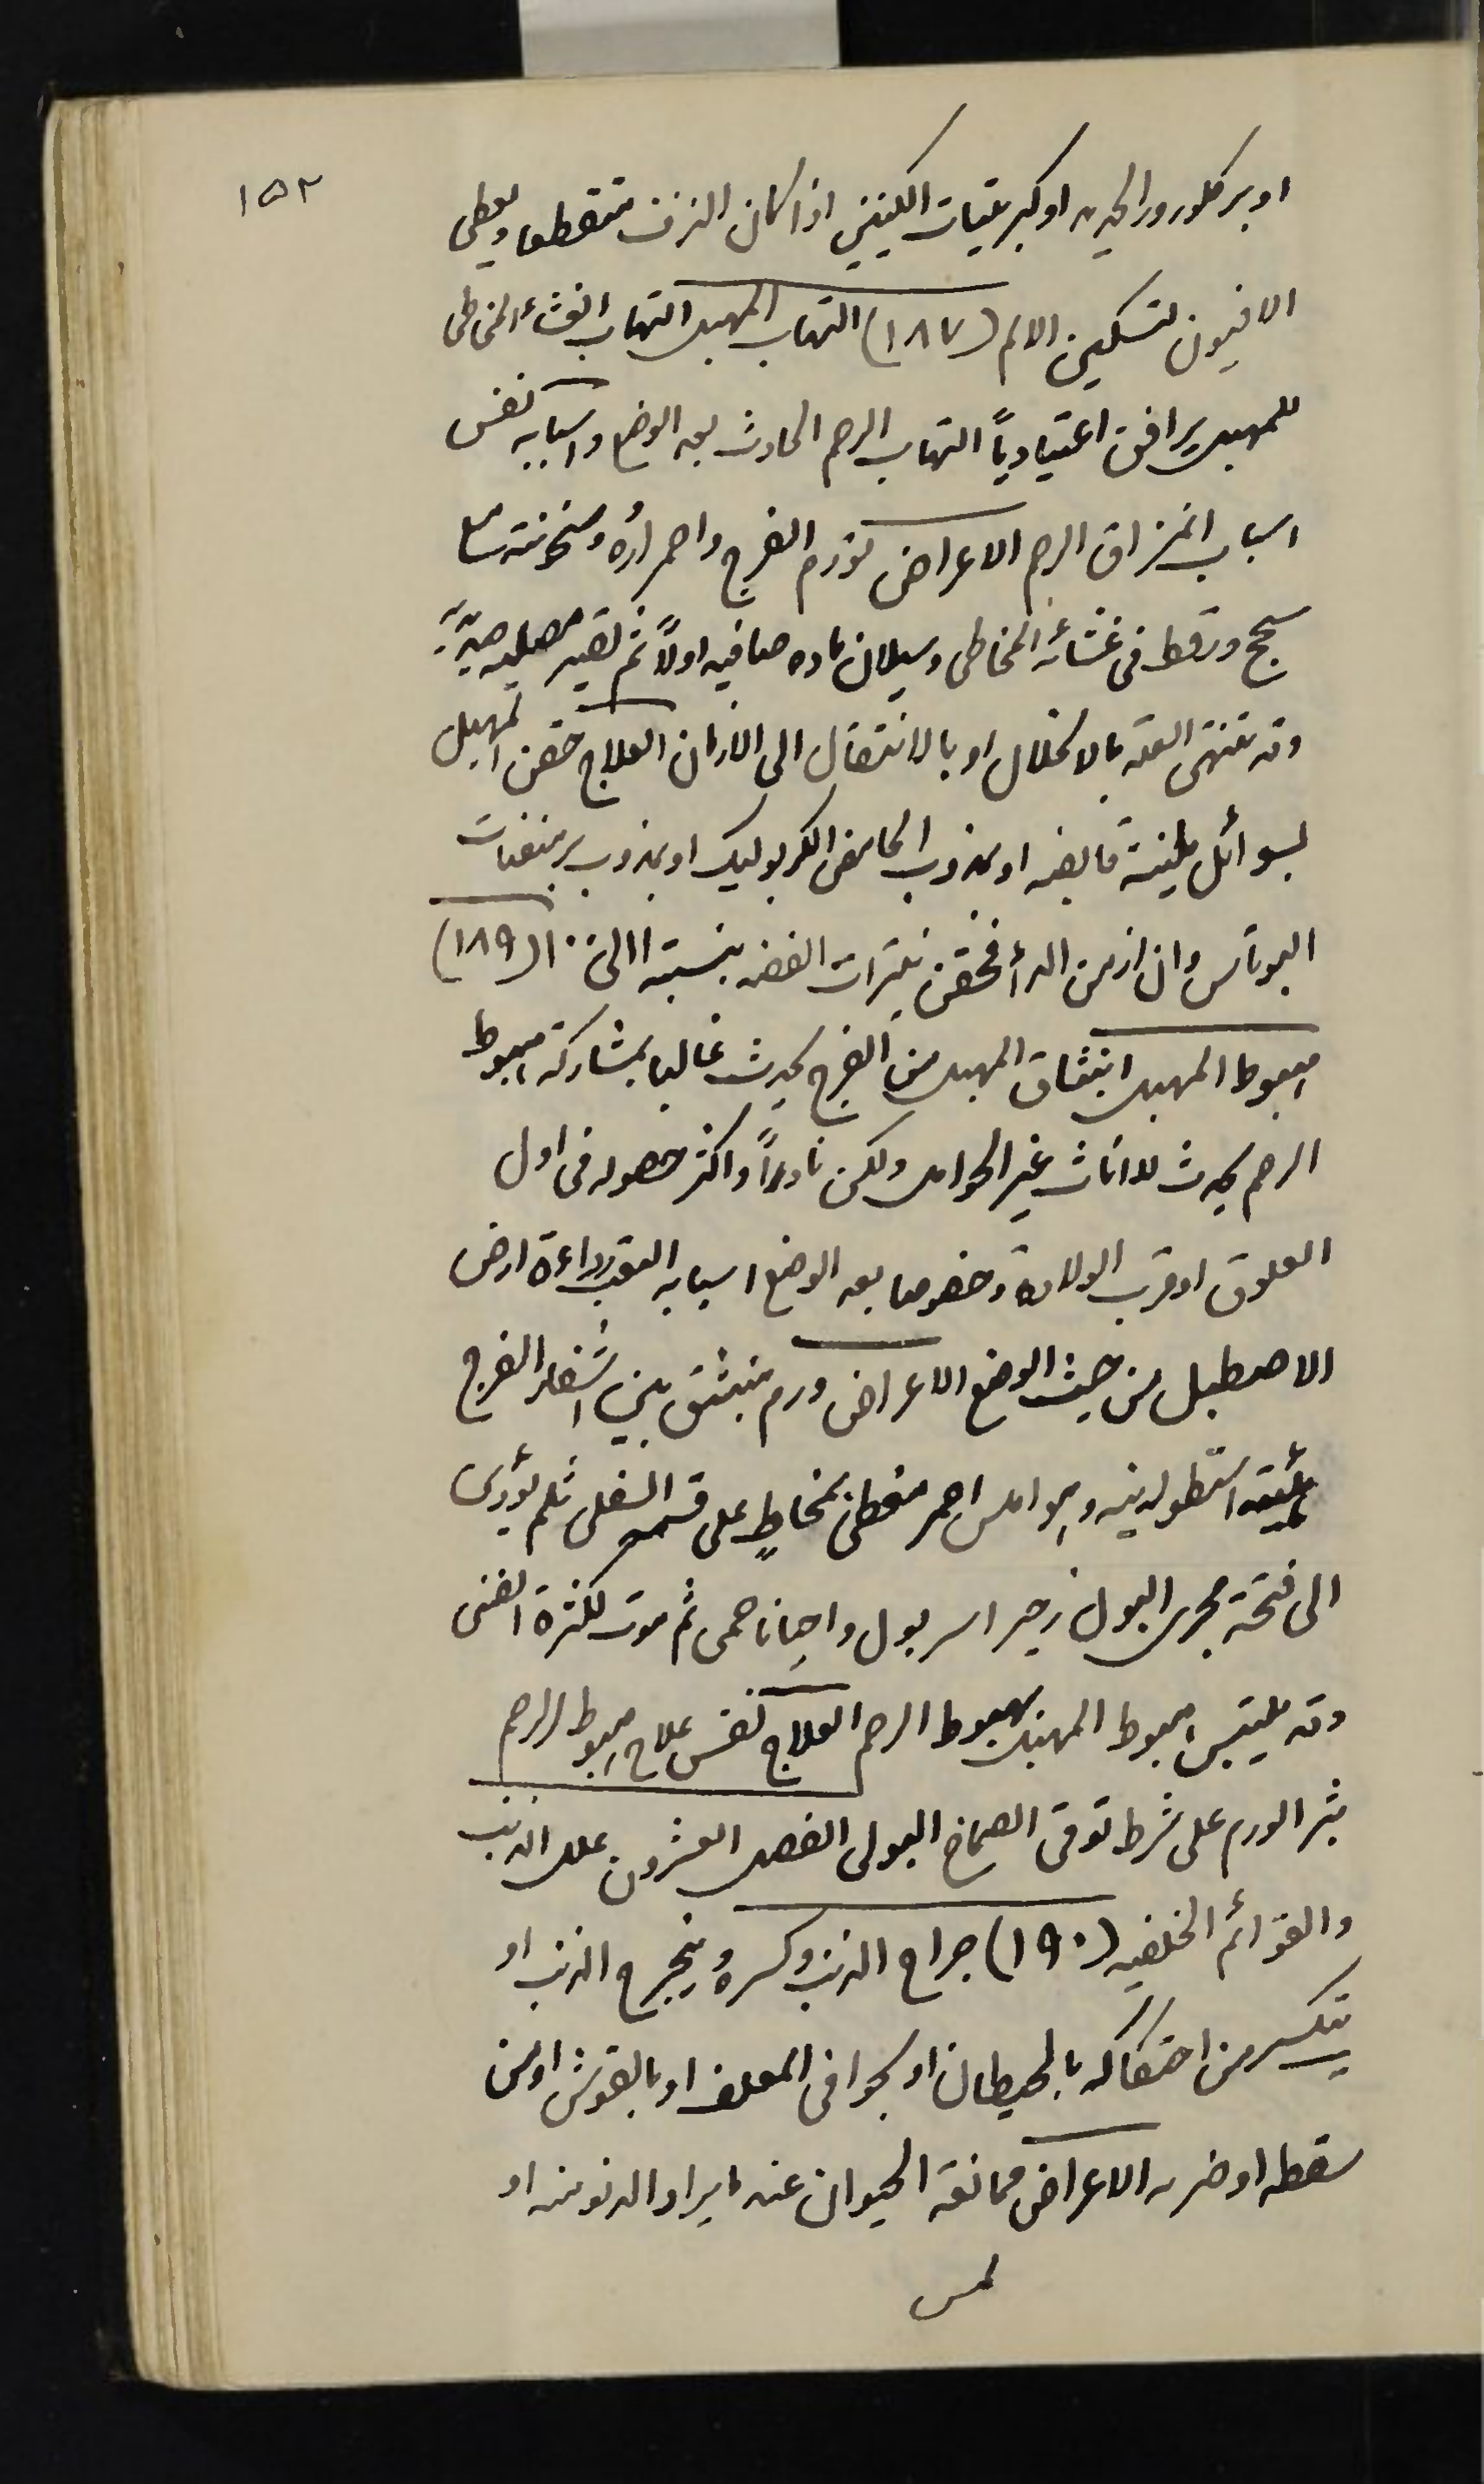 ١٥٢
او بركلورور الحديد او كبريتيات الكينين اذا كان النزف متقطعا ويعطى
الافيون لتسكين الالم (١٨٧) التهاب المهبل التهاب الغشاء المخاطى
للمهبل يرافق اعتيادياً التهاب الرحم الحادث بعد الوضع واسبابه نفس
اسباب انخزاق الرحم الاعراض تورم الفرج واحمراره وسخونته مع
سحج ورقط فى غشائه المخاطى وسيلان ماده صافيه اولاً ثم تصير مصليه صديديه
وقد تنتهى العله بالانحلال او بالانتقال الى الازمان العلاج حقن المهبل
بسوائل ملينة قابضه او بمذوب الحامض الكربوليك او بمذوب برمنغنات
البوتاس وان ازمن الداء فحقن نيترات الفضه بنسبة ١ الى ١٠ (١٨٩)
هبوط المهبل انبثاق المهبل من الفرج يحدث غالبا بمشاركة هبوط
الرحم يحدث للاناث غير الحوامل ولكن نادراً واكثر حصوله فى اول
العلوق او قرب الولادة وخصوصا بعد الوضع اسبابه التعب رداءة ارض
الاصطبل من حيث الوضع الاعراض ورم منبثق بين اشفار الفرج
بهيئة اسطوانية واملس احمر مغطى بمخاطٍ على قسمه السفلى ثلم يؤدى
الى فتحة مجرى البول زحير اسر بول واحيانا حمى ثم موت لكثرة الضنى
وقد يلتبس هبوط المهبل بهبوط الرحم العلاج كنفس علاج هبوط الرحم
بتر الورم على شرط توقى الصماخ البولى الفصل العشرون علل الذنب
والقوائم الخلفيه (١٩٠) جراح الذنب وكسره وينجرح الذنب او
يتكسر من احتكاكه بالحيطان او بحوافى المعلف او بالقوش او من
سقطه او ضربه الاعراض ممانعة الحيوان عند ما يراد الدنو منه او
لمس